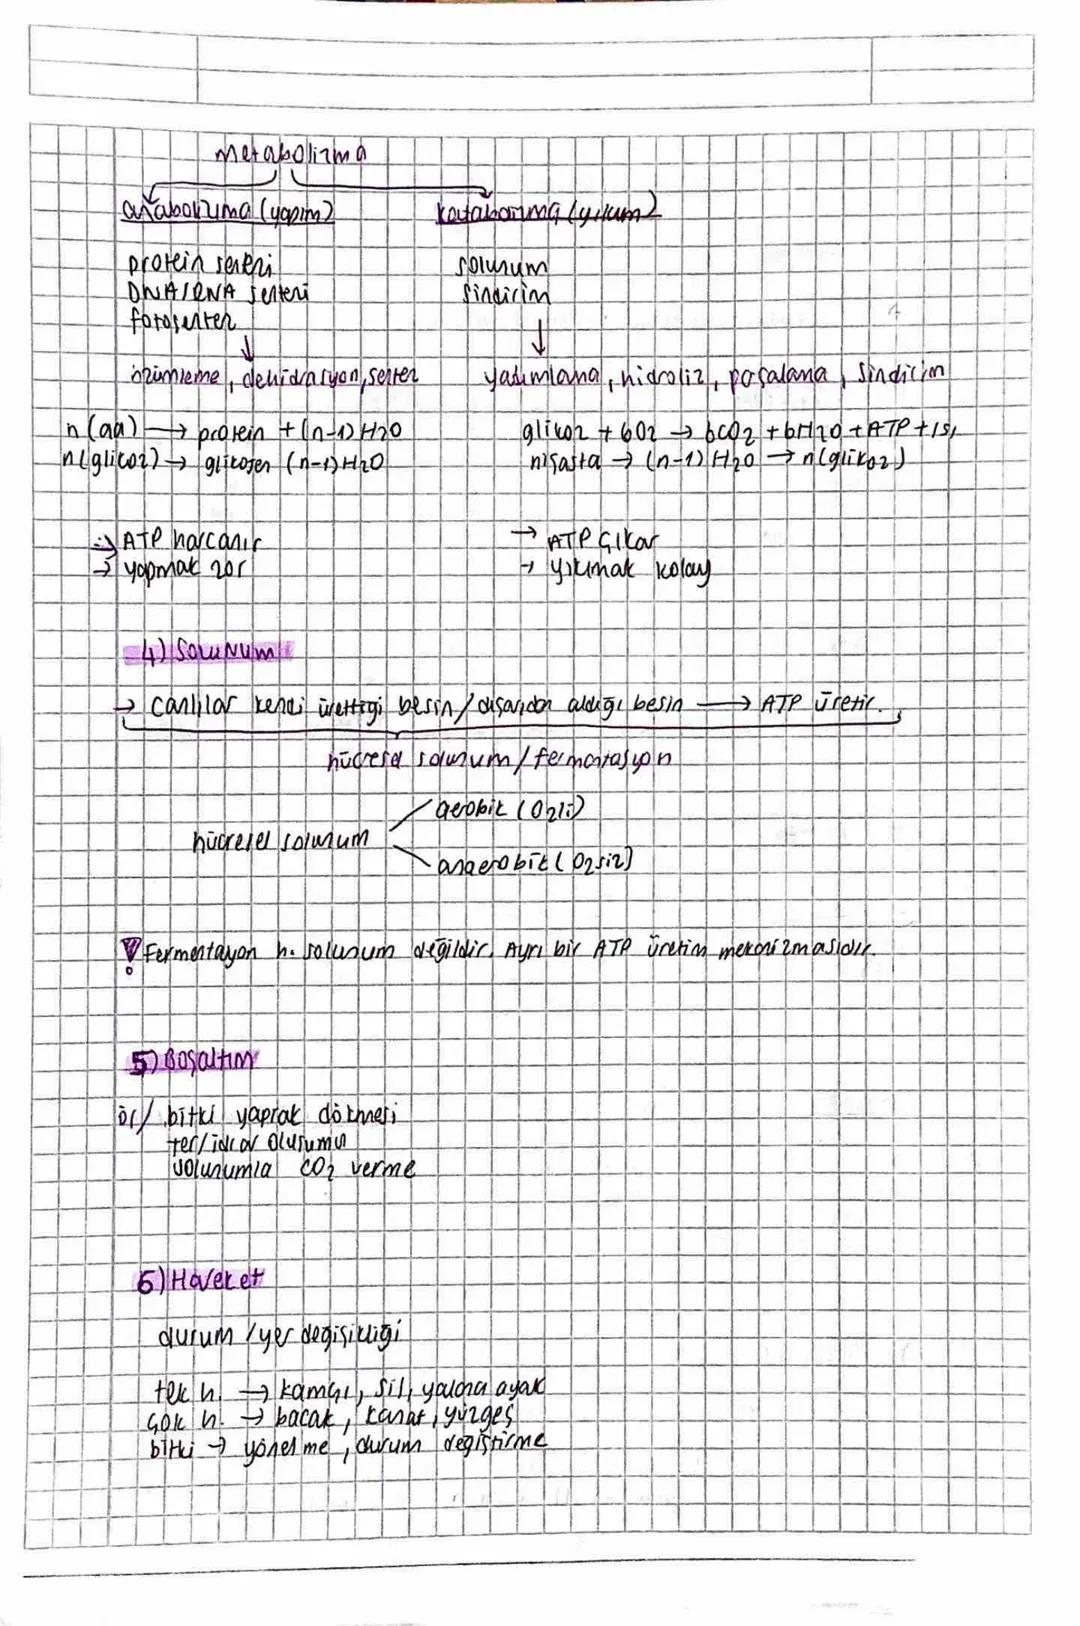 Metabolizma
anabolizma (yapım)
katabolizma (yıkım)
protein sentezi
DNA/RNA sentezi
fotosentez
solunum
sindirim
özümleme, dehidrasyon, sentez
yadımlama, hidroliz, parçalama, sindirim
n(aa) → protein + (n-1) H2O
n(glikoz) → glikojen (n-1) H2O
glikoz + 6O2 → 6CO2 + 6H2O + ATP + ısı
nişasta → (n-1) H2O → n(glikoz)
→ ATP harcanır
→ yapmak zor
→ ATP çıkar
→ yıkmak kolay
4) Solunum
→ canlılar kendi ürettiği besin/dışarıdan aldığı besin → ATP üretir.
hücresel solunum/fermantasyon
hücresel solunum
aerobik (O2li)
anaerobik (O2siz)
! Fermentasyon h. solunum değildir. Ayrı bir ATP üretim mekanizmasıdır.
5) Boşaltım
ör/ bitki yaprak dökmesi
ter/idrar oluşumu
solunumla CO2 verme
6) Hareket
durum/yer değişikliği
tek h. → kamçı, sil, yalancı ayak
çok h. → bacak, kanat, yüzgeç
bitki → yönelme, durum değiştirme